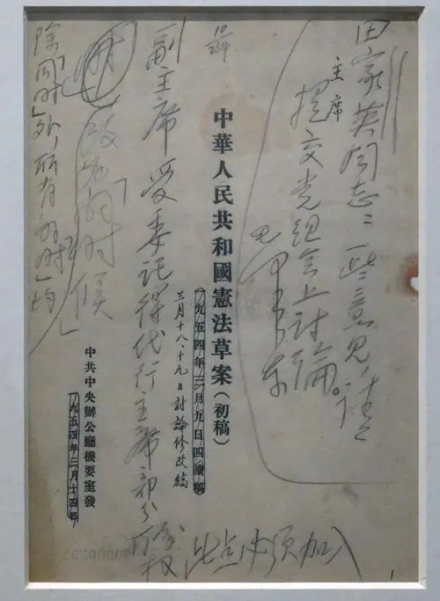 田家英同志：一些意見，請
主席
提交党組会上討論。
毛泽东
中華人民共和國憲法草案（初稿）
一九五四年三月九日四讀稿
三月十八、十九日討論修改稿
副主席受委託得代行主席部分职权
此点必须加入
中共中央辦公廳機要室發
一九五四年三月十四日
除「同时」外，所有的「时」均
改为「的时候」